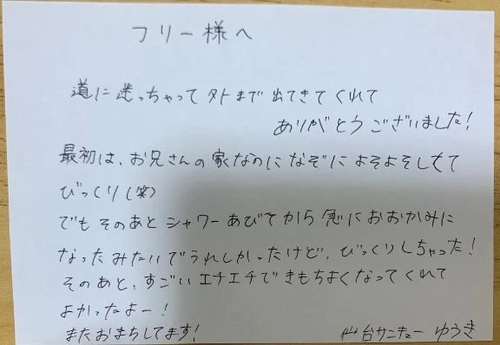 フリー様へ
道に迷っちゃって外まで出てきてくれて
ありがとうございました!
最初は、お兄さんの家なのになぞによそよそしくて
びっくり(笑)
でもそのあとシャワーあびてから急におおかみに
なったみたいでうれしかったけど、びっくりしちゃった!
そのあと、すごいエチエチできもちよくなってくれて
よかったよー!
またおまちしてます!
仙台サンキュー ゆうき